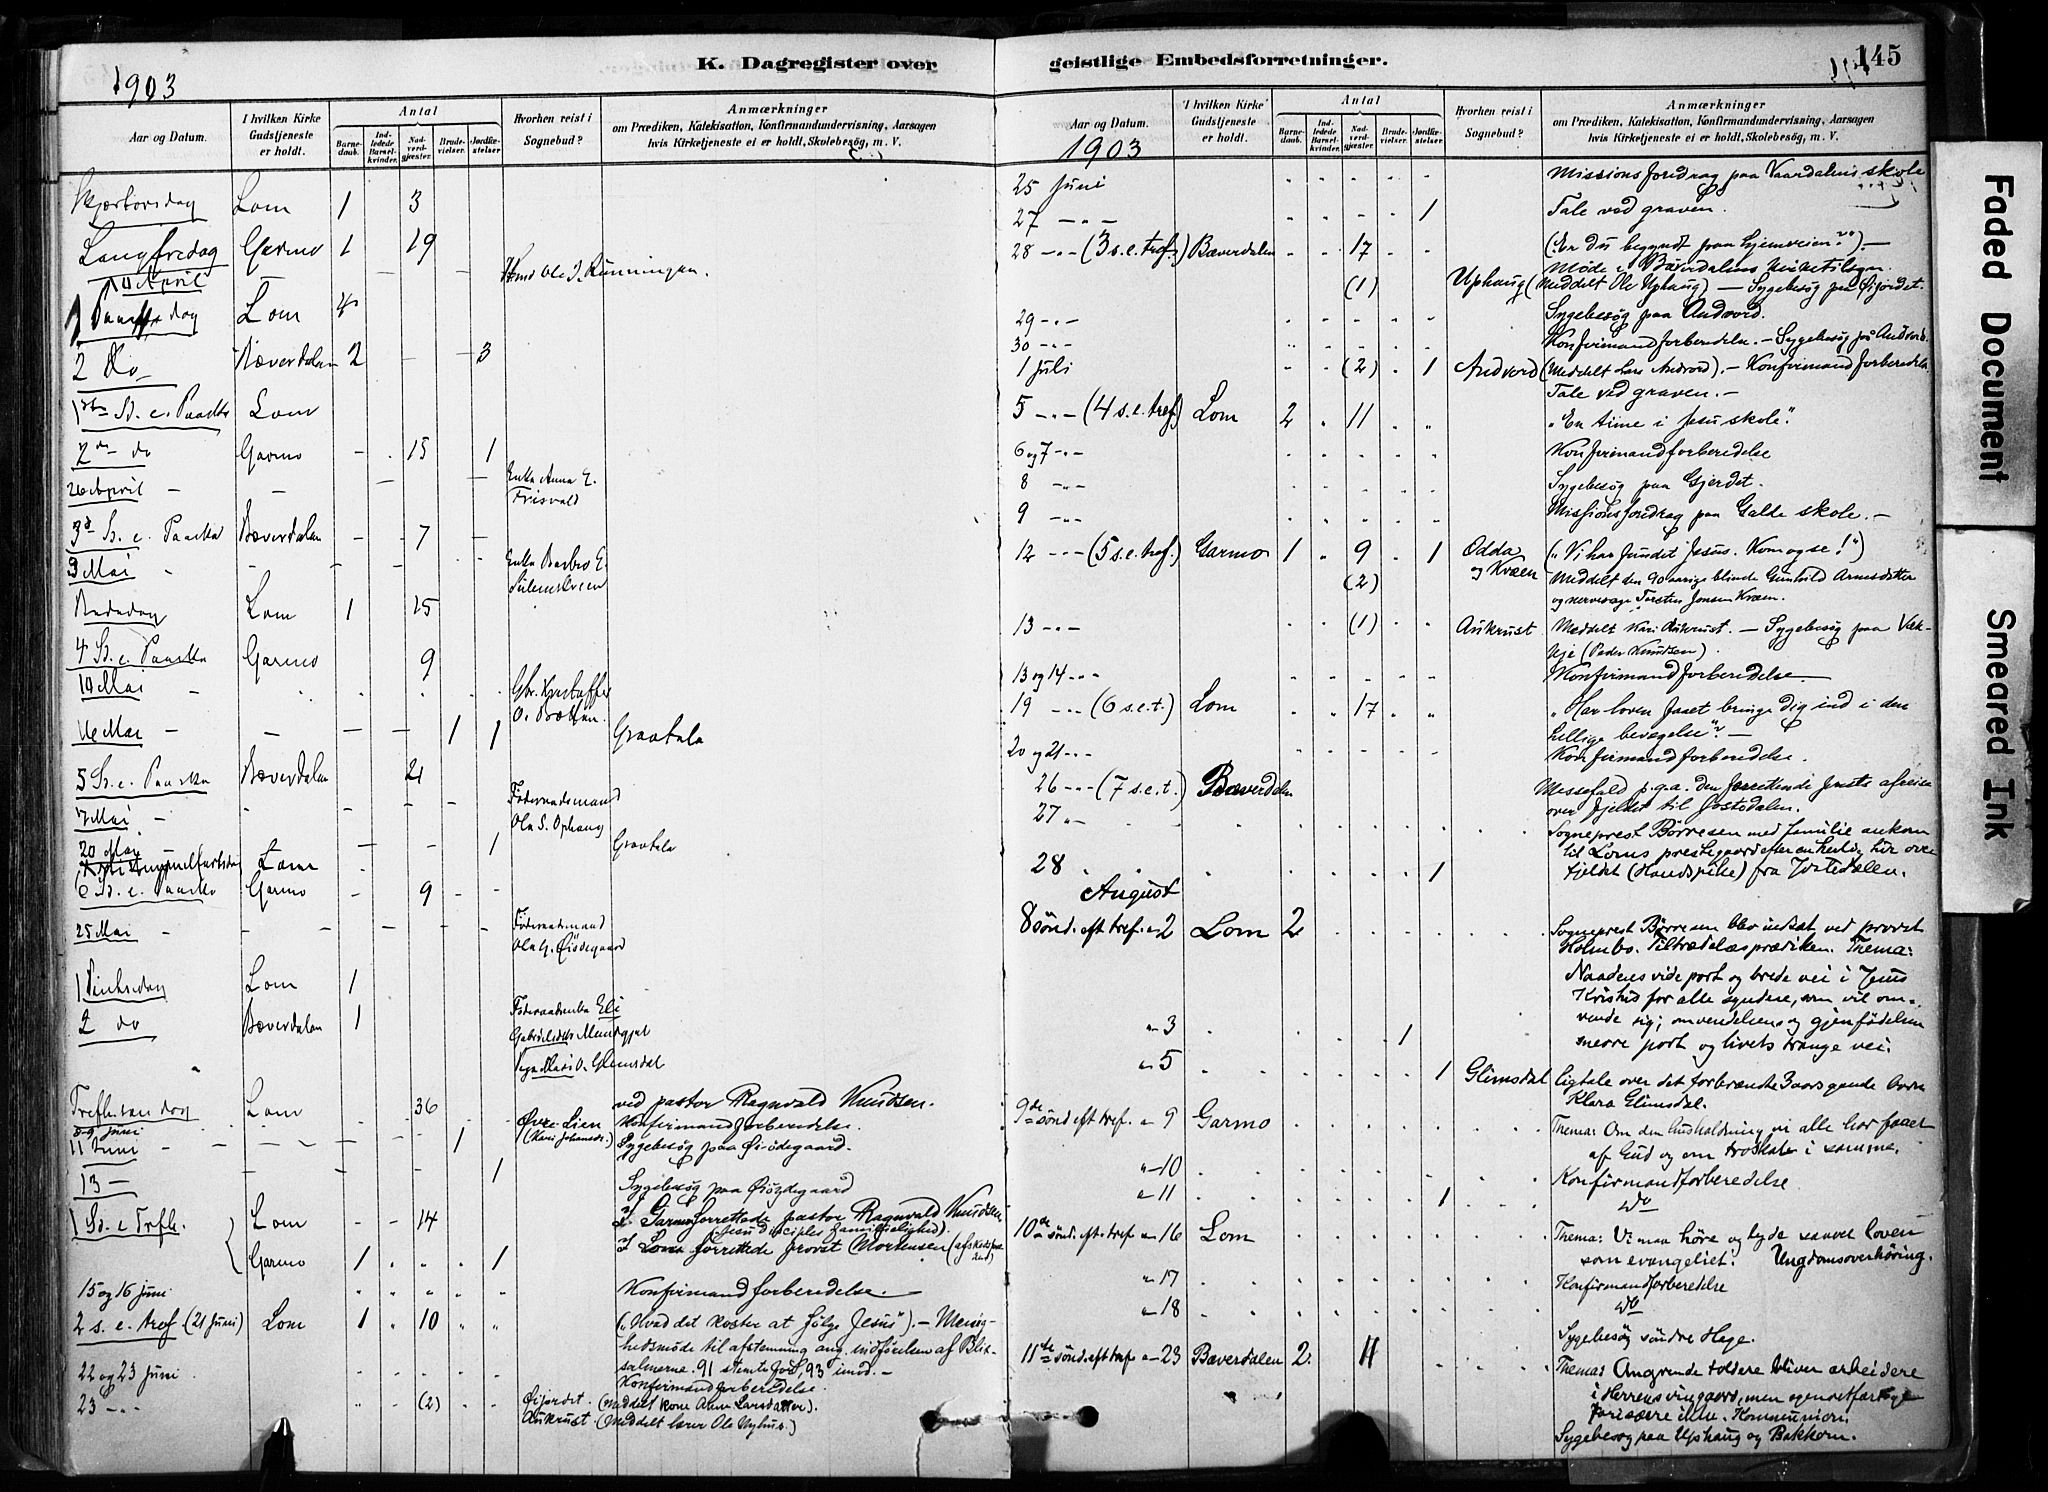 K. Dagregister over
1903
Aar og Datum.
I hvilken Kirke Gudstjeneste er holdt.
Antal
Barne-daab.
Ind-ledede Barsel-kvinder.
Nad-verd-gjester.
Brude-vielser.
Jordfæ-stelser
Hvorhen reist i Sognebud?
Anmærkninger
om Prædiken, Katekisation, Konfirmandundervisning, Aarsagen
hvis Kirketjeneste ei er holdt, Skolebesøg, m. V.
Skjærtorsdag Lom 1 3
Langfredag Garmo 1 19
April
1 Paaskedag Lom 4
2 do Bæverdalen 2 - - 3
1ste S. e. Paaske Lom
2den do Garmo - . 15 1
26 April - - Enke Anna E. Frisvald
3d S. e. Paaske Bæverdalen - - 7 -
9 Mai - - Enke Barbro E.
Bededag Lom 1 25
4 S. e. Paaske Garmo 9
10 Mai -
16 Mai - - - - 1 1 Gravtale
5 S. e. Paaske Bæverdalen - 21
Mai - Føderaadsmand Ola S. Ophaug
20 Mai - 1 Gravtale
Kristi Himmelfartsdag Lom
6 S. e. Paaske Garmo - - 9 - -
25 Mai - - Føderaadsmand Ola G. Øiödegaard
1 Pintsedag Lom 1
2 do Bæverdalen 1
Føderaadsenke Eli
Trefoldsøndag Lom - - 36 - - ved pastor Ragnvald Knudsen.
8-9 Juni Øvre Lien Konfirmandforberedelse.
11 Juni - - - - 1 (Kari Johansdr.) Sygebesøg paa Øiödegaard.
13 - - - - 1 Sygebesøg paa Øiödegaard
1 S. e Trefl. Lom - - 14 I Garmo forrettede pastor Ragnvald Knudsen
(Jesu disciples hemmelighed).
Garmo 1 . „ . 1 I Lom forrettede provst Mortensen
15 og 16 juni Konfirmandforberedelse.
2 s. e. tref (21 Juni) Lom 1 „ 10 „ „ („Hvad det koster at følge Jesus“). - Menig-
hedsmøde til afstemning ang. indførelsen af Blix-
salmerne. 91 stemte for, 93 imod. -
22 og 23 Juni Konfirmandforberedelse.
23 - „ - (2) Øijordet. (Meddelt kone Anne Larsdatter).
Aukrust. (Meddelt lærer Ole Nyhus.)
geistlige Embedsforretninger.
145
Aar og Datum.
1903
I hvilken Kirke Gudstjeneste er holdt.
Antal
Barne-daab.
Ind-ledede Barsel-kvinder.
Nad-verd-gjester.
Brude-vielser.
Jordfæ-stelser
Hvorhen reist i Sognebud?
Anmærkninger
om Prædiken, Katekisation, Konfirmandundervisning, Aarsagen
hvis Kirketjeneste ei er holdt, Skolebesøg, m. V.
25 Juni Missionsforedrag paa Vaardalens skole
27 - „ - 1 Tale ved graven.
28 - „ - (3 s. e. tref.) Bæverdalen „ „ 17 „ „ (Er du begyndt paa hjemveien?“) -
Møde i Bæverdalens kirketilsyn.
(1) Uphaug (Meddelt Ole Uphaug) - Sygebesøg paa Øijordet.
29 - „ - Sygebesøg paa Andvord.
30 - „ - Konfirmandforberedelse. - Sygebesøg på Andvord.
1 Juli „ „ (2) „ 1 Andvord (Meddelt Lars Andvord). - Konfirmandforberedelse
Tale ved graven. -
5 - „ - (4 s. e. tref.) Lom 2 „ 11 „ „ „En time i Jesu skole“.
6 og 7 - „ - Konfirmandforberedelse
8 - „ - Sygebesøg paa Gjerdet.
9 - „ - Missionsforedrag paa Galde skole. -
12 - „ - (5 s. e. tref.) Garmo 1 „ 9 „ 1 Odda („Vi har fundet Jesus. Kom og se!“)
(2) og Kvæen Meddelt den 90 aarige blinde Gunhild Arnesdatter
og nervesvage Torsten Jonsen Kvæen.
13 - „ - (1) Aukrust Meddelt Kari Aukrust. - Sygebesøg paa
(Peder Knudsen).
13 og 14 - „ - Konfirmandforberedelse. -
19 - „ - (6 s. e. t.) Lom „ „ 17 „ „ „Har loven faaet bringe dig ind i den
hellige bevægelse“? -
20 og 21 - „ - Konfirmandforberedelse.
26 - „ - (7 s. e. t.) Bæverdalen Messefald p. g. a. den forrettende prests afreise
over fjeldet til Jostedalen.
27 „ Sogneprest Børresen med familie ankom
til Loms prestegaard efter en heldig tur over
28 1 fjeldet (Handspikje) fra Jostedalen.
August
8 sønd. eft tref. „ 2 Lom 2 Sogneprest Børresen blev indsat ved provst
Holmbo. Tiltrædelsesprædiken. Thema:
Naadens vide port og brede vei i Jesus
Kristus for alle syndere, som vil om-
vende sig; omvendelsens og gjenfødelsens
snevre port og livets trange vei.
„ 3 1
„ 5 1 Glimsdal ligtale over det forbrændte 3 aars gamle barn
Klara Glimsdal.
9de sønd eft tref. „ 9 Garmo Thema: Om den husholdning vi alle har faaet
af Gud og om troskab i samme.
„ 10 Konfirmandforberedelse
„ 11 1 do
10de sønd. eft. tref „ 16 Lom Thema: Vi maa høre og lyde saavel loven
som evangeliet. Ungdomsoverhøring.
„ 17 Konfirmandforberedelse
„ 18 do
Sygebesøg søndre Hage.
11te sønd. eft tref „ 23 Bæverdalen 2. 11 Thema: Angrende toldere bliver arbeidere
i Herrens vingaard, men egenretfærdige
farisæere ikke. Kommunion.
Sygebesøg paa Uphaug og Bakkom.
Faded Document
Smeared Ink